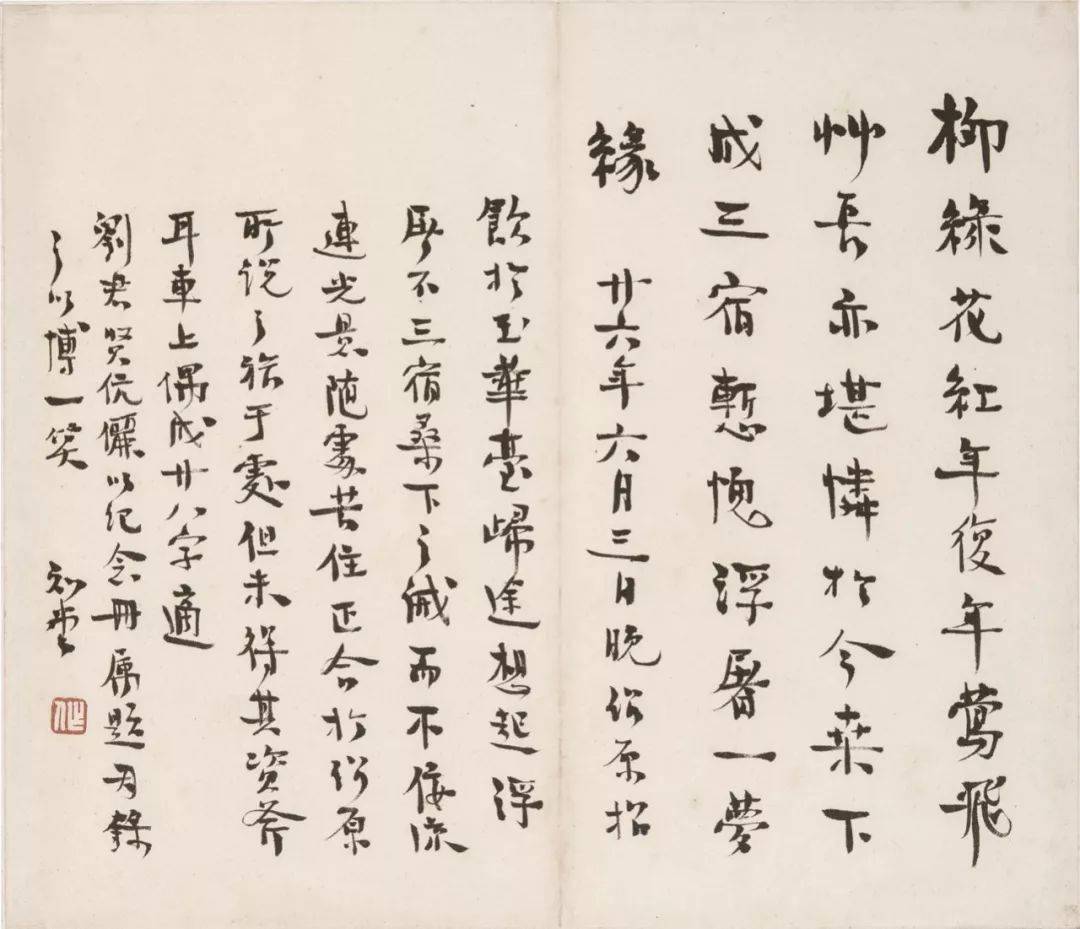 柳綠花紅年復年鶯飛
艸長亦堪憐於今桒下
成三宿慙愧浮屠一夢
緣 廿六年六月三日晚紹原招
飲於玉華臺歸途想起浮
屠不三宿桑下之誡而不佞流
連光景隨處苦住正合於紹原
所說之旅于處但未得其資斧
耳車上偶成廿八字適
劉君賢伉儷以纪念冊属題因錄
之以博一笑 知堂